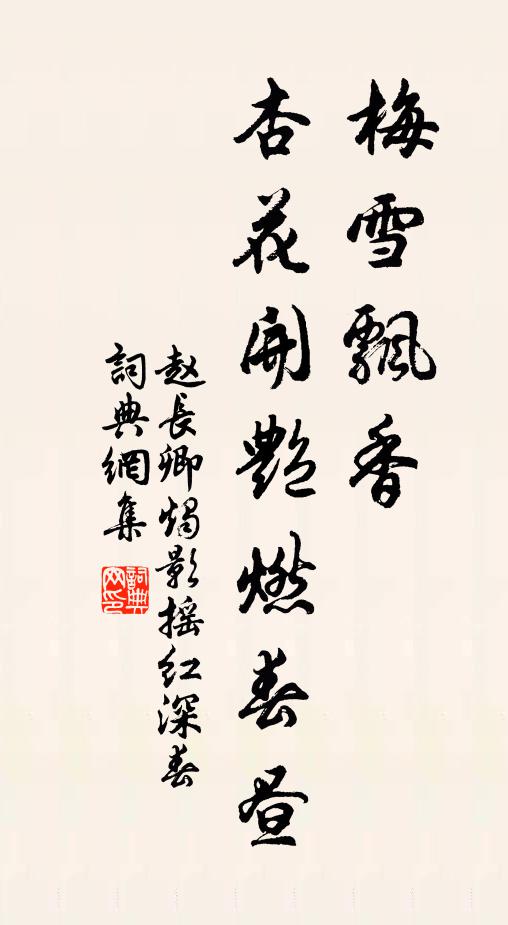 梅雪飄香
杏花開艷燃春晝
赵長卿燭影摇红深春
詞典網集
詞典
网印